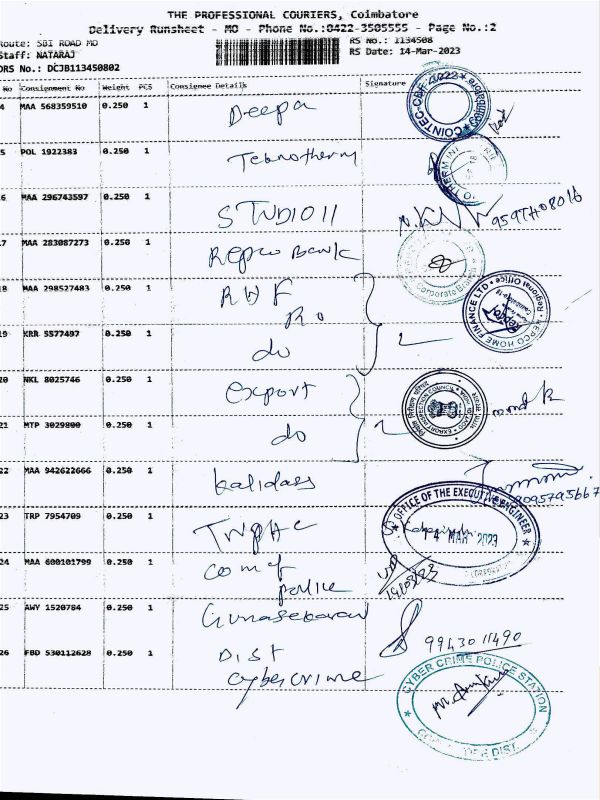 THE PROFESSIONAL COURIERS, Coimbatore
Delivery Runsheet - MO - Phone No.:0422-3505555 - Page No.:2
Route: SBI ROAD MO
RS No.: 1134508
Staff: NATARAJ
RS Date: 14-Mar-2023
DRS No.: DCJB113450802
No Consignment No Weight PCS Consignee Details Signature
4 MAA 568359510 0.250 1 Deepa
5 POL 1922383 0.250 1 Teknotherm
6 MAA 296743597 0.250 1 STUDIO 11
7 MAA 283087273 0.250 1 Repco Bank
Corporate Branch
18 MAA 298527483 0.250 1 RHF
Ro
REPCO HOME FINANCE LTD • Regional Office
19 KRR 5577497 0.250 1 do
20 NKL 8025746 0.250 1 Export
EXPORT INSPECTION COUNCIL
21 MTP 3029800 0.250 1 do
22 MAA 942622666 0.250 1 Kalidass
23 TRP 7954709 0.250 1
OFFICE OF THE EXECUTIVE ENGINEER
14 MAR 2023
24 MAA 600101799 0.250 1 Com of
police
25 AWY 1520784 0.250 1 Gunasekaran
9943011490
26 FBD 530112628 0.250 1 Dist
Cybercrime
CYBER CRIME POLICE STATION
DIST.